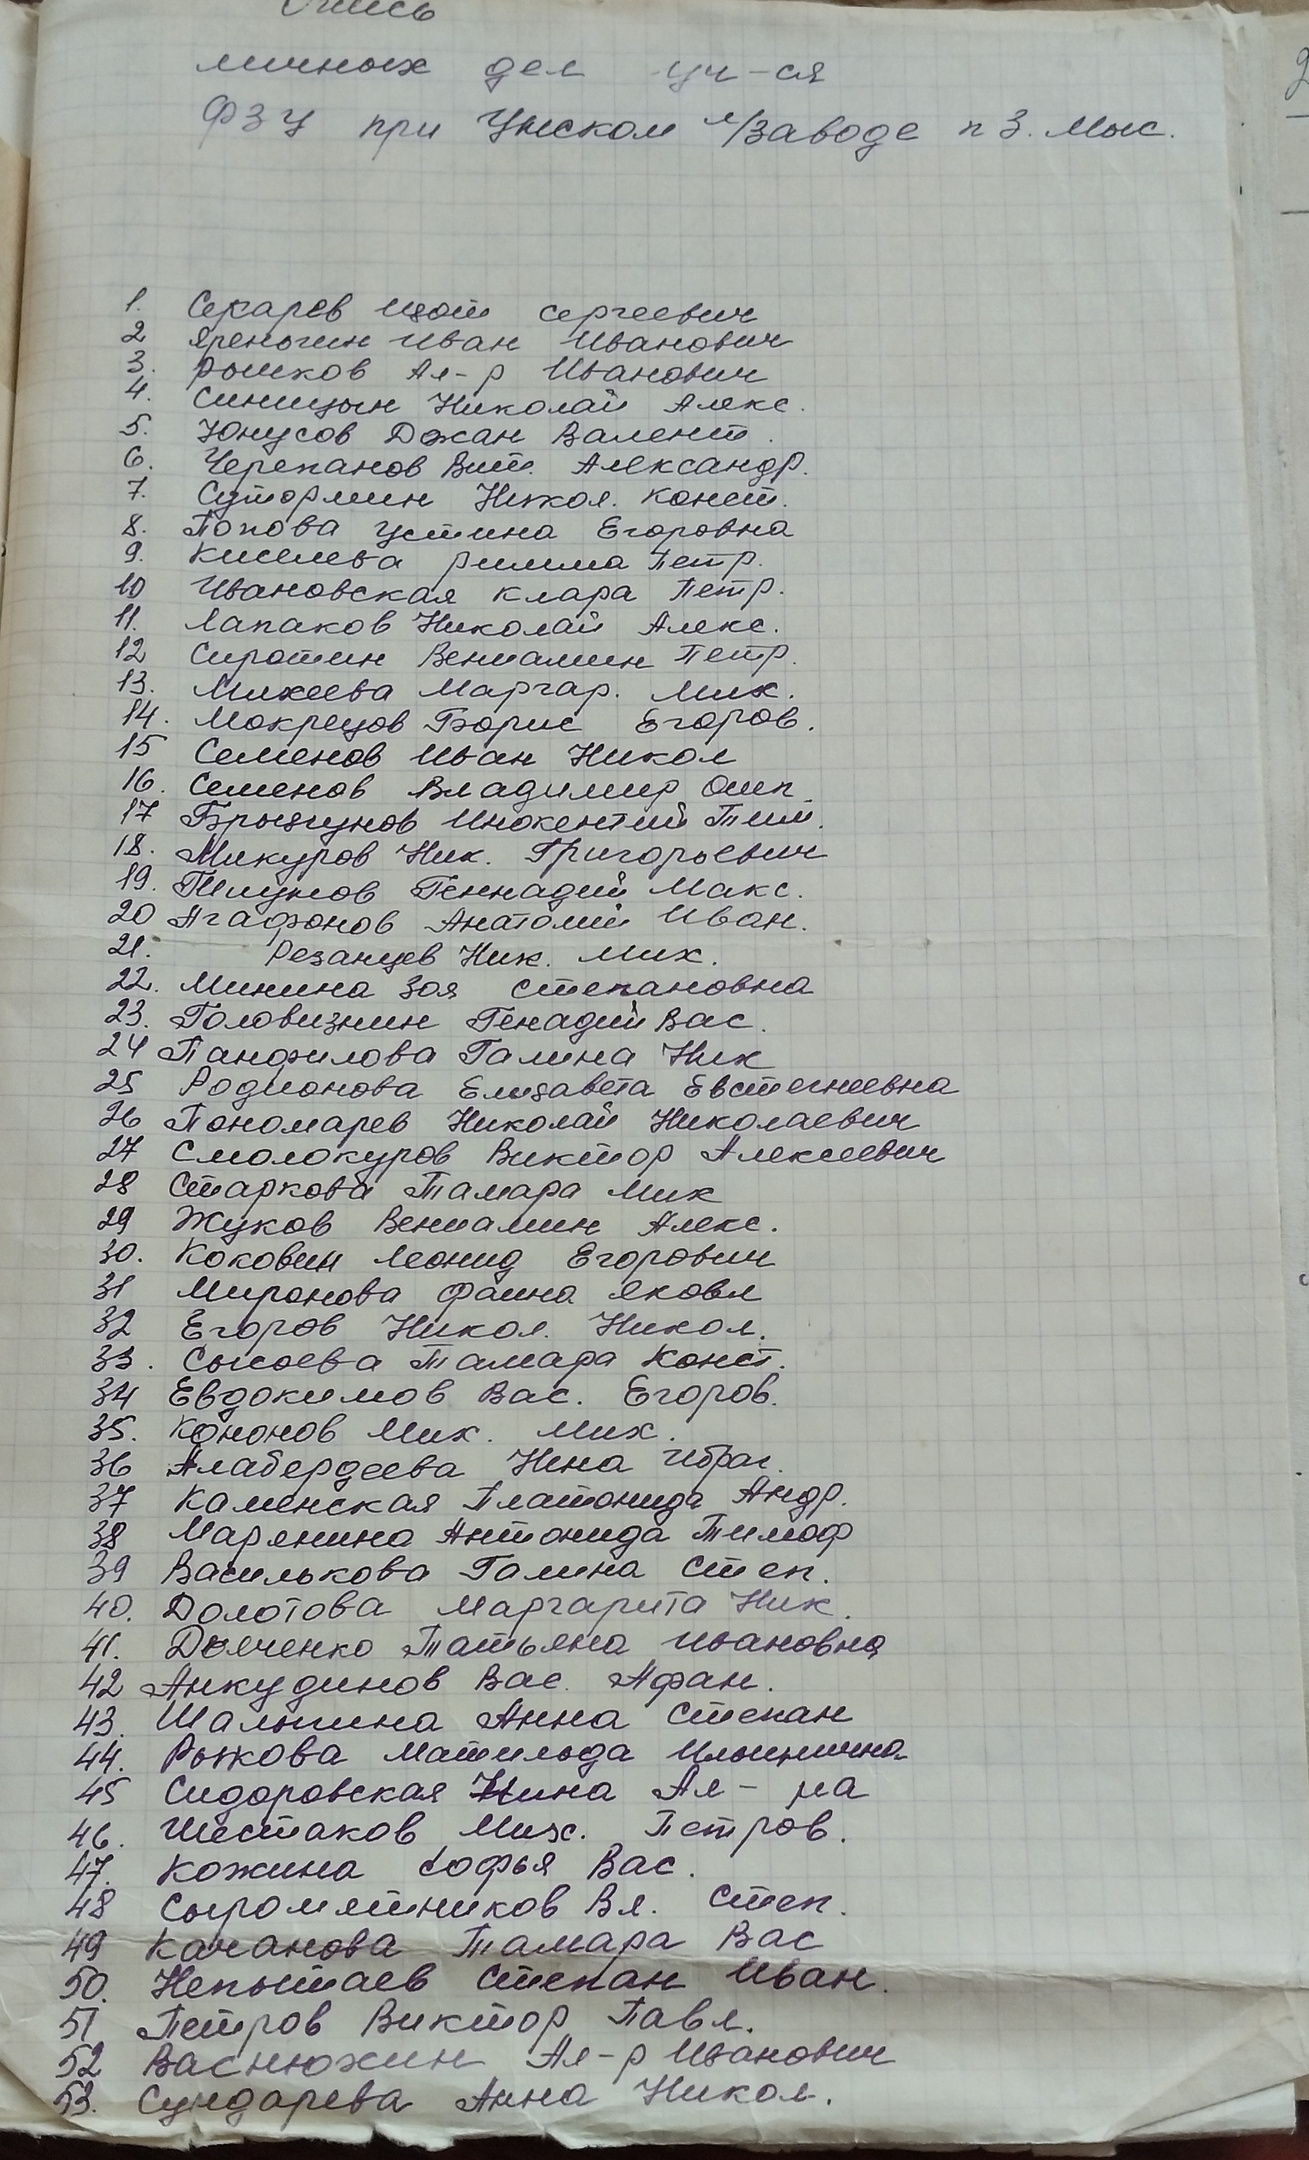 Опись
личных дел уч-ся
ФЗУ при Унском л/заводе п 3. Мыс.
1. Секарев Изот Сергеевич
2 Яреньгин Иван Иванович
3. Рышков Ал-р Иванович
4. Синицын Николай Алекс.
5. Юнусов Джан Валент.
6. Черепанов Вит. Александр.
7. Сутормин Никол. Конст.
8. Попова Устина Егоровна
9. Киселева Римма Петр.
10 Ивановская Клара Петр.
11. Лапаков Николай Алекс.
12 Сиротин Вениамин Петр.
13. Михеева Маргар. Мих.
14. Мокрецов Борис Егоров.
15 Семенов Иван Никол
16. Семенов Владимир
17 Брызгунов Инокентий Тим.
18. Микуров Ник. Григорьевич
19. Геннадий Макс.
20 Агафонов Анатолий Иван.
21. Резанцев Ник. Мих.
22. Минина Зоя Степановна
23. Головизнин Генадий Вас.
24 Панфилова Галина Ник
25 Родионова Елизавета Евстегнеевна
26 Пономарев Николай Николаевич
27 Смолокуров Виктор Алексеевич
28 Старкова Тамара Мих
29 Жуков Вениамин Алекс.
30. Коковин Леонид Егорович
31 Миронова Фаина Яковл
32 Егоров Никол. Никол.
33. Сысоева Тамара Конст.
34 Евдокимов Вас. Егоров.
35. Кононов Мих. Мих.
36 Алабердеева Нина Ибраг.
37 Каменская Платонида Андр.
38 Марянина Антонида Тимоф
39 Василькова Галина Степ.
40. Долотова Маргарита Ник.
41. Дьяченко Татьяна Ивановна
42 Анкудинов Вас. Афан.
43. Шалыгина Анна Степан
44. Рыжкова Матильда Ильинична
45 Сидоровская Нина Ал-на
46. Шестаков Мих. Петров.
47. Кожина Софья Вас.
48 Сыромятников Вл. Степ.
49 Качанова Тамара Вас
50. Непытаев Степан Иван.
51 Петров Виктор Павл.
52 Васнюхин Ал-р Иванович
53. Сундарева Анна Никол.